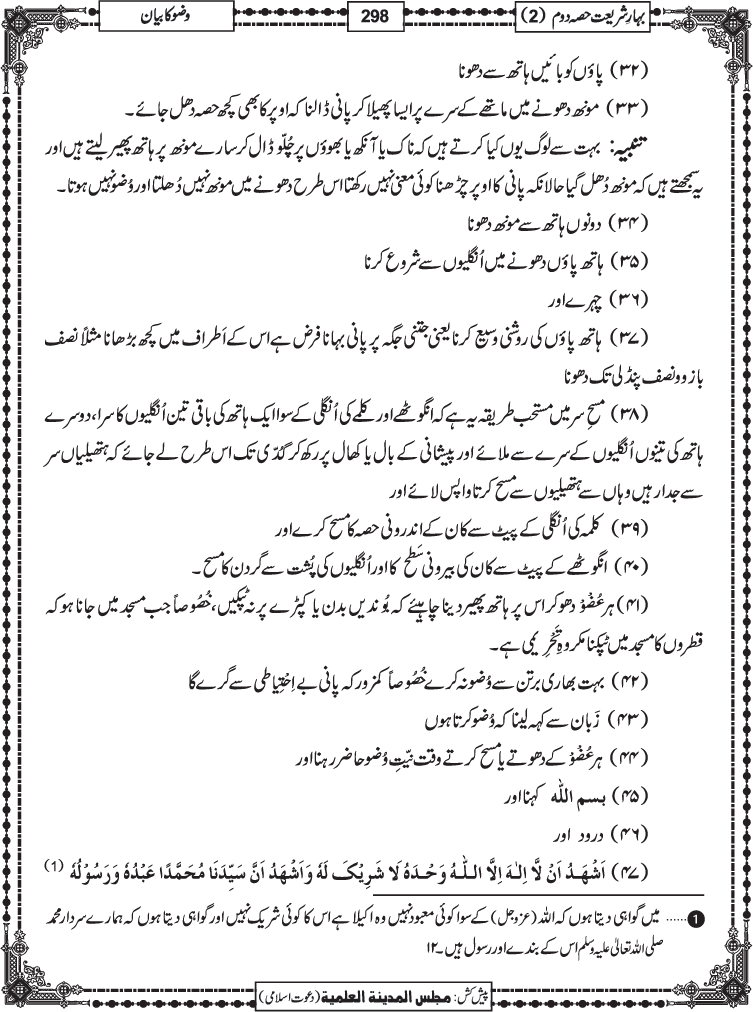 بہارِ شریعت حصہ دوم (2)
298
وضو کا بیان
(۳۲) پاؤں کو بائیں ہاتھ سے دھونا
(۳۳) مونھ دھونے میں ماتھے کے سرے پر ایسا پھیلا کر پانی ڈالنا کہ اوپر کا بھی کچھ حصہ دھل جائے۔
تنبیہ: بہت سے لوگ یوں کیا کرتے ہیں کہ ناک یا آنکھ یا بھوؤں پر چُلّو ڈال کر سارے مونھ پر ہاتھ پھیر لیتے ہیں اور
یہ سمجھتے ہیں کہ مونھ دُھل گیا حالانکہ پانی کا اوپر چڑھنا کوئی معنی نہیں رکھتا اس طرح دھونے میں مونھ نہیں دُھلتا اور وُضو نہیں ہوتا۔
(۳۴) دونوں ہاتھ سے مونھ دھونا
(۳۵) ہاتھ پاؤں دھونے میں اُنگلیوں سے شروع کرنا
(۳۶) چہرے اور
(۳۷) ہاتھ پاؤں کی روشنی وسیع کرنا یعنی جتنی جگہ پر پانی بہانا فرض ہے اس کے اَطراف میں کچھ بڑھانا مثلاً نصف
بازو و نصف پنڈلی تک دھونا
(۳۸) مسحِ سر میں مستحب طریقہ یہ ہے کہ انگوٹھے اور کلمے کی اُنگلی کے سوا ایک ہاتھ کی باقی تین اُنگلیوں کا سرا، دوسرے
ہاتھ کی تینوں اُنگلیوں کے سرے سے ملائے اور پیشانی کے بال یا کھال پر رکھ کر گدّی تک اس طرح لے جائے کہ ہتھیلیاں سر
سے جدا رہیں وہاں سے ہتھیلیوں سے مسح کرتا واپس لائے اور
(۳۹) کلمہ کی اُنگلی کے پیٹ سے کان کے اندرونی حصہ کا مسح کرے اور
(۴۰) انگوٹھے کے پیٹ سے کان کی بیرونی سَطح کا اور اُنگلیوں کی پُشت سے گردن کا مسح۔
(۴۱) ہر عُضْوْ دھو کر اس پر ہاتھ پھیر دینا چاہیئے کہ بُوندیں بدن یا کپڑے پر نہ ٹپکیں، خُصُوصاً جب مسجد میں جانا ہو کہ
قطروں کا مسجد میں ٹپکنا مکروہِ تَحْرِیمی ہے۔
(۴۲) بہت بھاری برتن سے وُضو نہ کرے خُصُوصاً کمزور کہ پانی بے اِحْتِیاطی سے گرے گا
(۴۳) زَبان سے کہہ لینا کہ وُضو کرتا ہوں
(۴۴) ہر عُضْوْ کے دھوتے یا مسح کرتے وقت نیّتِ وُضو حاضر رہنا اور
(۴۵) بسم اللہ کہنا اور
(۴۶) درود اور
(۴۷) اَشْھَدُ اَنْ لَّا اِلٰہَ اِلَّا اللّٰہُ وَحْدَہٗ لَا شَرِیْکَ لَہٗ وَاَشْھَدُ اَنَّ سَیِّدَنَا مُحَمَّدًا عَبْدُہٗ وَرَسُوْلُہٗ (1)
1 ...... میں گواہی دیتا ہوں کہ اللہ (عزوجل) کے سوا کوئی معبود نہیں وہ اکیلا ہے اس کا کوئی شریک نہیں اور گواہی دیتا ہوں کہ ہمارے سردار محمد
صلی اللہ تعالیٰ علیہ وسلم اس کے بندے اور رسول ہیں۔۱۲
پیش کش: مجلس المدینۃ العلمیۃ (دعوتِ اسلامی)